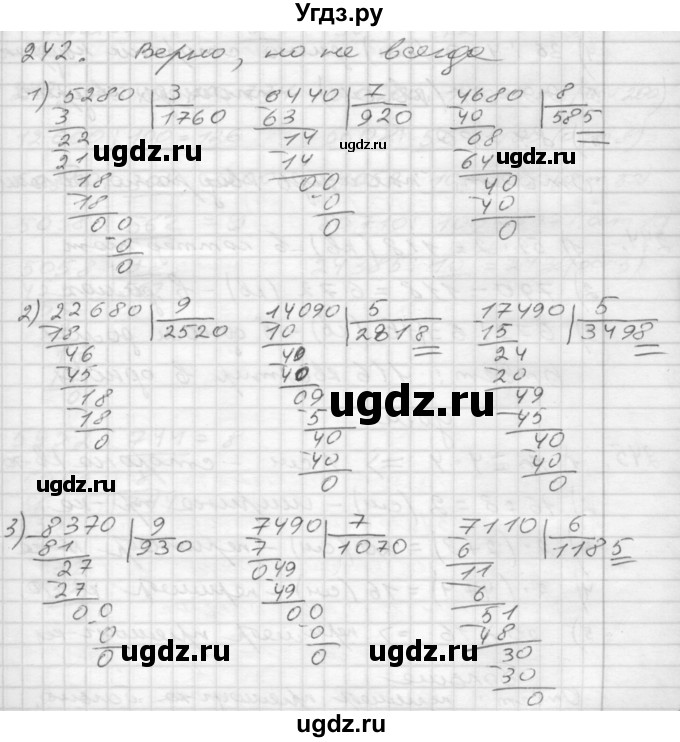 Угдз.ру
242. Верно, но не всегда
1) 5280 | 3    6440 | 7    4680 | 8
3 | 1760    63 | 920    40 | 585
22    14    68
21    14    64
18    00    40
18    0    40
00    0    0
0
0
ugdz.ru
ugdz.ru
ugdz.ru
2) 22680 | 9    14090 | 5    17490 | 5
18 | 2520    10 | 2818    15 | 3498
46    40    24
45    40    20
18    09    49
18    5    45
0    40    40
40    40
0    0
ugdz.ru
ugdz.ru
3) 8370 | 9    7490 | 7    7110 | 6
81 | 930    7 | 1070    6 | 1185
27    049    11
27    49    6
00    00    51
0    0    48
0    0    30
30
0
ugdz.ru
ugdz.ru
ugdz.ru
ugdz.ru